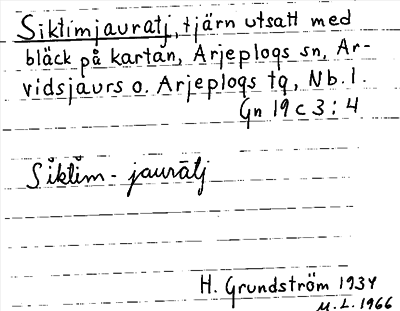 Siktimjauratj, tjärn utsatt med
bläck på kartan, Arjeplogs sn, Ar-
vidsjaurs o. Arjeplogs tg, Nb. l.
Gn 19 c 3 : 4
Siktim - jaurātj
H. Grundström 1934
M. L. 1966